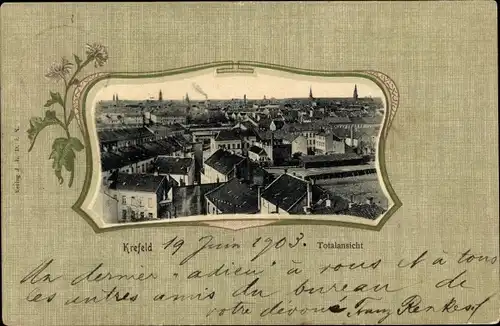 Krefeld 19 Juin 1903. Totalansicht
Un dernier "adieu" à vous et à tous
les autres amis du bureau de
votre dévoué Franz
Verlag J. K. D. i. X.